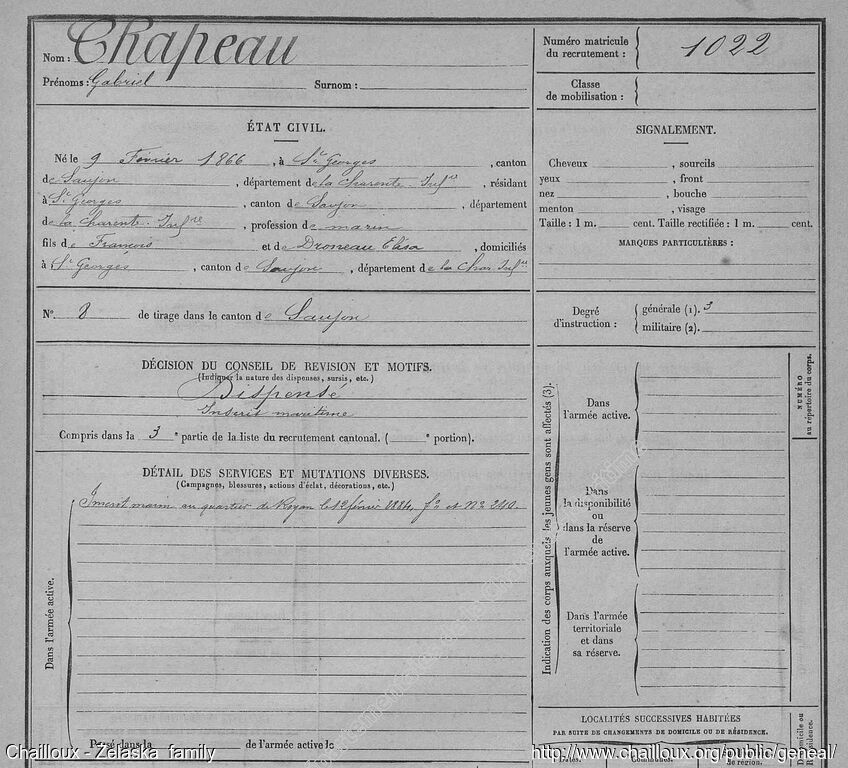 Nom: Chapeau
Prénoms: Gabriel Surnom:
ÉTAT CIVIL.
Né le 9 Février 1866, à St Georges, canton
de Saujon, département de la Charente-Infre, résidant
à St Georges, canton de Saujon, département
de la Charente-Infre, profession de marin
fils de Francois et de Droneau Elisa, domiciliés
à St Georges, canton de Saujon, département de la Char. Infre
No. 8 de tirage dans le canton de Saujon
DÉCISION DU CONSEIL DE REVISION ET MOTIFS.
(Indiquer la nature des dispenses, sursis, etc.)
Dispensé
Inscrit maritime
Compris dans la 3e partie de la liste du recrutement cantonal. ( e portion).
DÉTAIL DES SERVICES ET MUTATIONS DIVERSES.
(Campagnes, blessures, actions d'éclat, décorations, etc.)
Inscrit marin au quartier de Royan le 12 février 1884, fo et No 240.
Dans l'armée active.
Passé dans la de l'armée active le
Numéro matricule
du recrutement : 1022
Classe
de mobilisation :
SIGNALEMENT.
Cheveux , sourcils
yeux , front
nez , bouche
menton , visage
Taille : 1 m. cent. Taille rectifiée : 1 m. cent.
MARQUES PARTICULIÈRES :
Degré
d'instruction :
générale (1). 3
militaire (2).
Indication des corps auxquels les jeunes gens sont affectés (3).
Dans
l'armée active.
Dans
la disponibilité
ou
dans la réserve
de
l'armée active.
Dans l'armée
territoriale
et dans
sa réserve.
NUMÉRO
au répertoire du corps.
LOCALITÉS SUCCESSIVES HABITÉES
PAR SUITE DE CHANGEMENTS DE DOMICILE OU DE RÉSIDENCE.
Dates. Communes. de région.
Domicile ou
Résidence.
Chailloux - Zelaska family
http://www.chailloux.org/public/geneal/